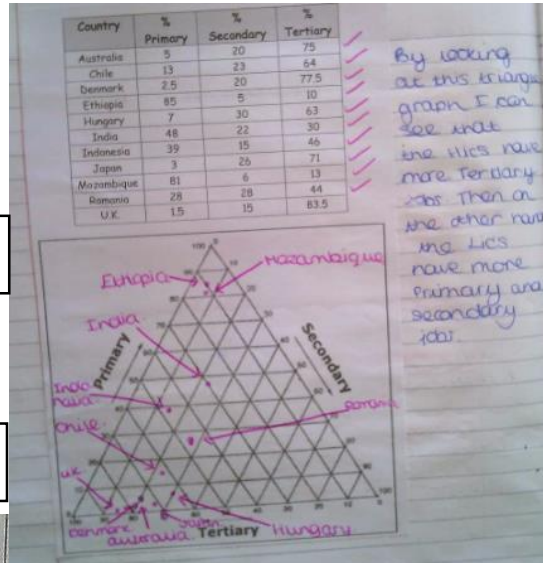 Country % Primary % Secondary % Tertiary
Australia 5 20 75
Chile 13 23 64
Denmark 2.5 20 77.5
Ethiopia 85 5 10
Hungary 7 30 63
India 48 22 30
Indonesia 39 15 46
Japan 3 26 71
Mozambique 81 6 13
Romania 28 28 44
U.K. 1.5 15 83.5
By looking
at this triangu
graph I can
see that
the HICs have
more Tertiary
jobs. Then on
the other hand
the LICs
have more
Primary and
secondary
jobs.
Ethiopia
Mozambique
India
Primary
Secondary
Indo
Chile
UK
Denmark
Australia
Japan
Tertiary
Hungary